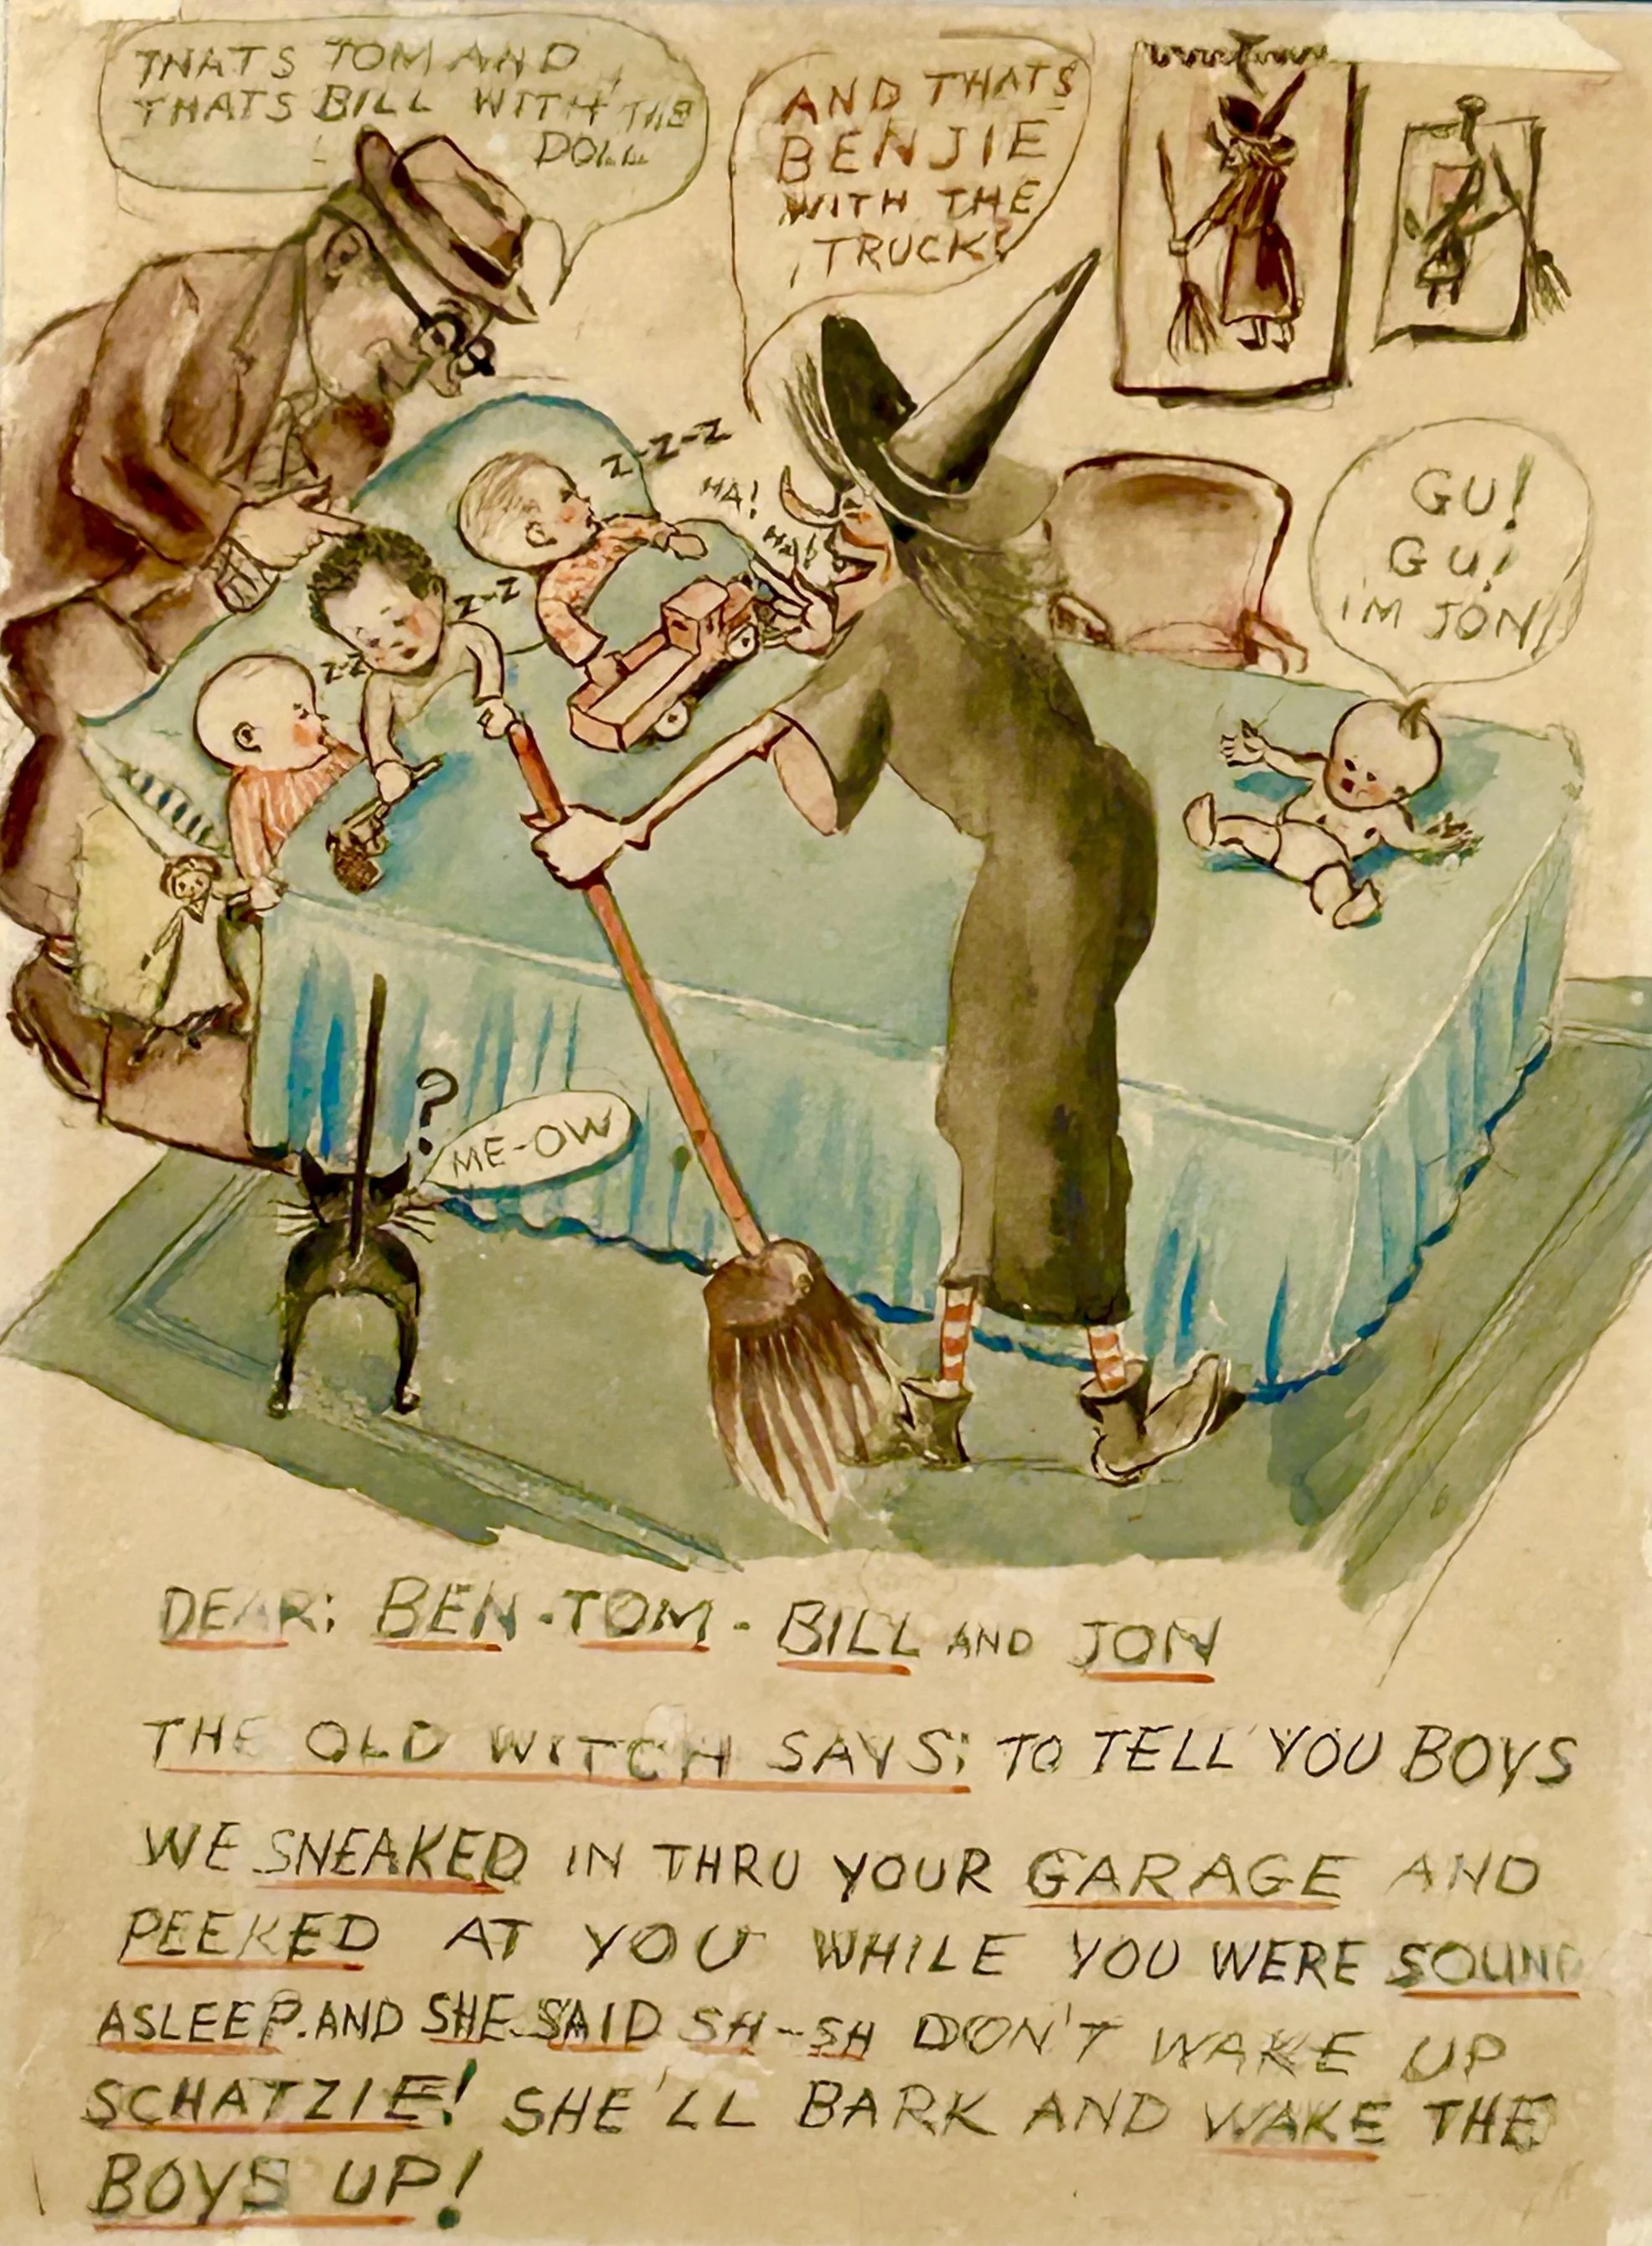 THATS TOM AND
THATS BILL WITH THE
DOLL
AND THATS
BENJIE
WITH THE
TRUCK!
Z-Z-Z
HA!
HA!
Z-Z
Z-Z
GU!
GU!
IM JON
?
ME-OW
DEAR: BEN-TOM-BILL AND JON
THE OLD WITCH SAYS: TO TELL YOU BOYS
WE SNEAKED IN THRU YOUR GARAGE AND
PEEKED AT YOU WHILE YOU WERE SOUND
ASLEEP. AND SHE SAID SH-SH DON'T WAKE UP
SCHATZIE! SHE'LL BARK AND WAKE THE
BOYS UP!